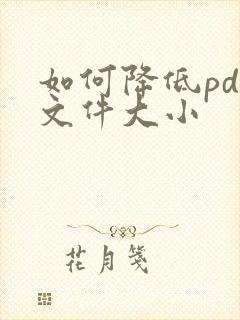 如何降低pd
文件大小
花月笺